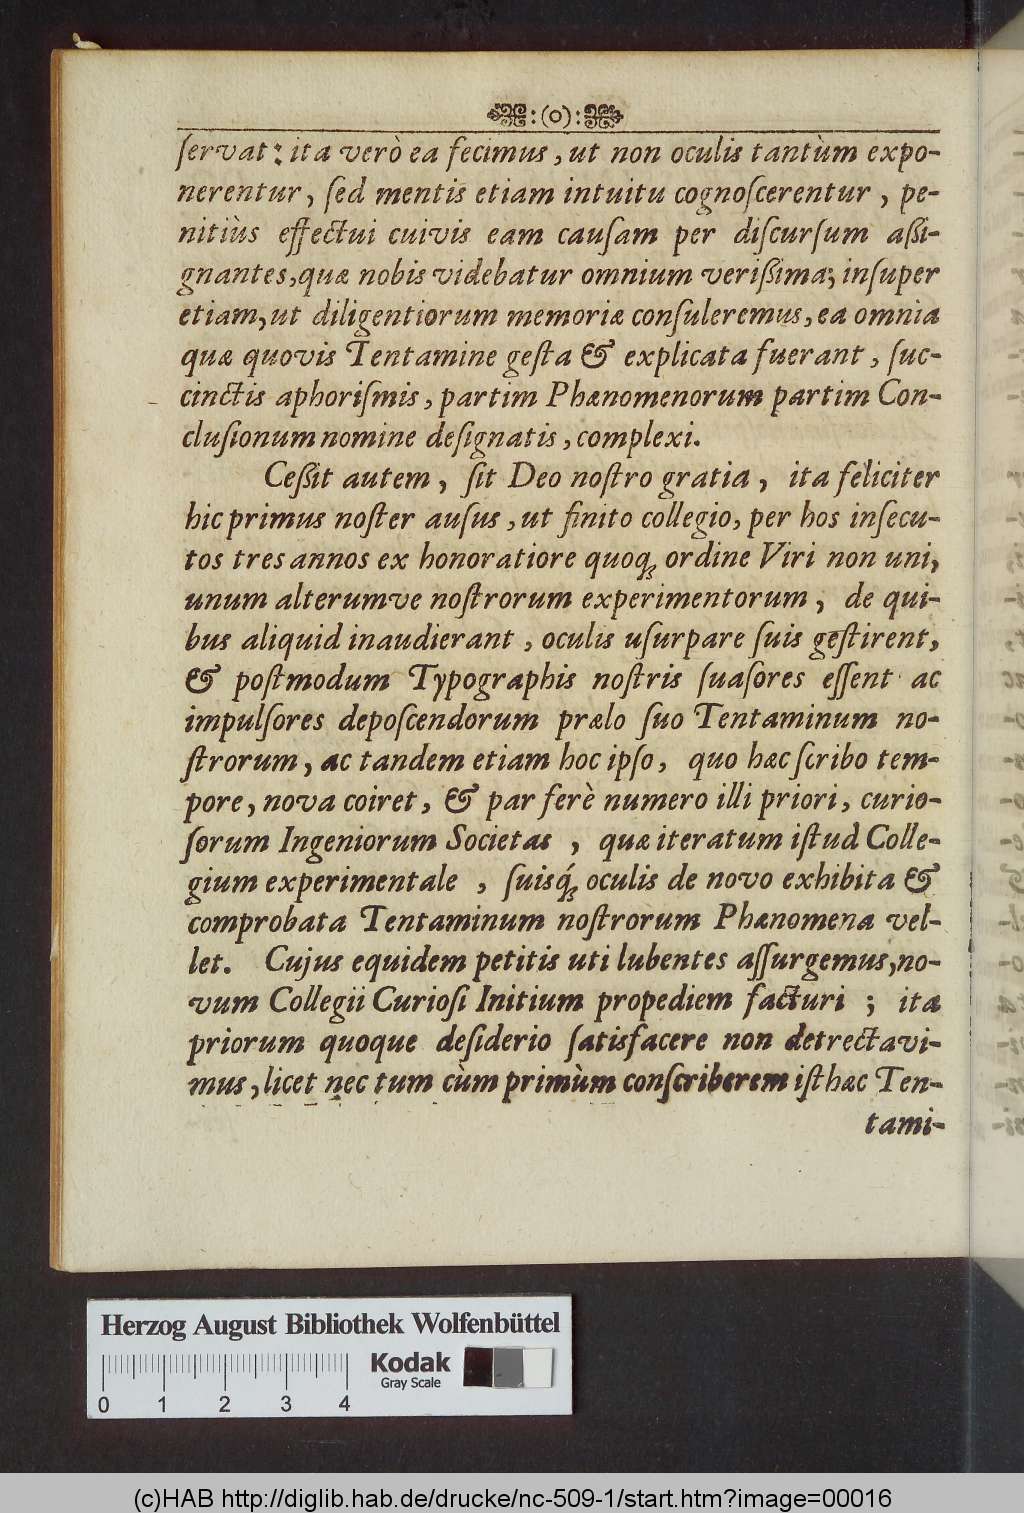 :(o):
ſervat: ita verò ea fecimus, ut non oculis tantùm expo-
nerentur, ſed mentis etiam intuitu cognoſcerentur, pe-
nitiùs effectui cuivis eam cauſam per diſcurſum aßi-
gnantes, quæ nobis videbatur omnium verißima; inſuper
etiam, ut diligentiorum memoriæ conſuleremus, ea omnia
quæ quovis Tentamine geſta & explicata fuerant, ſuc-
cinctis aphoriſmis, partim Phænomenorum partim Con-
cluſionum nomine deſignatis, complexi.
Ceßit autem, ſit Deo noſtro gratia, ita feliciter
hic primus noſter auſus, ut finito collegio, per hos inſecu-
tos tres annos ex honoratiore quoq; ordine Viri non uni,
unum alterumve noſtrorum experimentorum, de qui-
bus aliquid inaudierant, oculis uſurpare ſuis geſtirent,
& poſtmodum Typographis noſtris ſuaſores eſſent ac
impulſores depoſcendorum prælo ſuo Tentaminum no-
ſtrorum, ac tandem etiam hoc ipſo, quo hæc ſcribo tem-
pore, nova coiret, & par ferè numero illi priori, curio-
ſorum Ingeniorum Societas, quæ iteratum iſtud Colle-
gium experimentale, ſuisq́; oculis de novo exhibita &
comprobata Tentaminum noſtrorum Phænomena vel-
let. Cujus equidem petitis uti lubentes aſſurgemus, no-
vum Collegii Curioſi Initium propediem facturi; ita
priorum quoque deſiderio ſatisfacere non detrectavi-
mus, licet nec tum cùm primùm conſcriberem iſthæc Ten-
tami-
Herzog August Bibliothek Wolfenbüttel
Kodak
Gray Scale
0 1 2 3 4
(c)HAB http://diglib.hab.de/drucke/nc-509-1/start.htm?image=00016